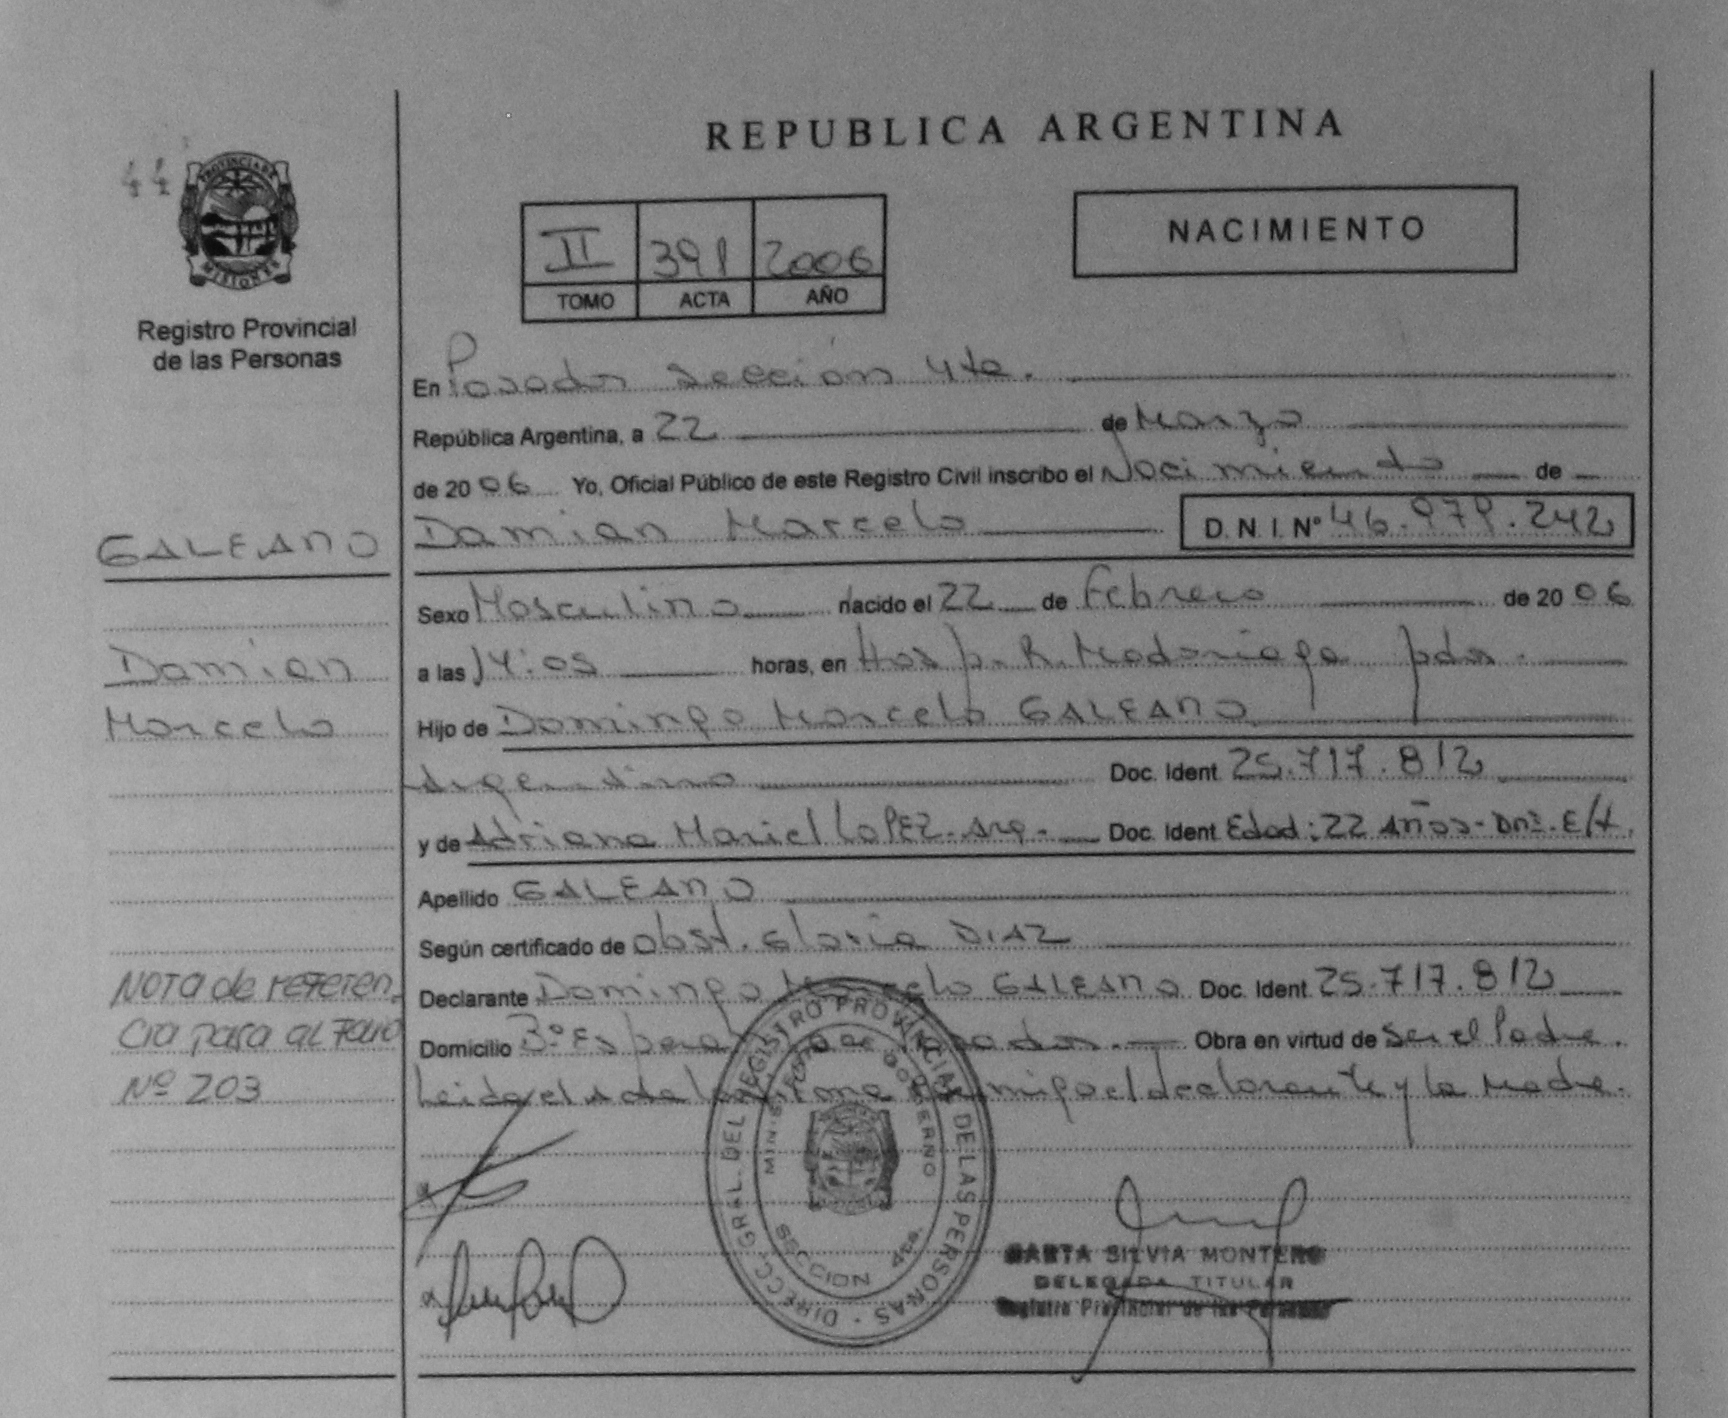 REPUBLICA ARGENTINA
44
PROVINCIA DE
MISIONES
Registro Provincial
de las Personas
II 391 2006
TOMO ACTA AÑO
NACIMIENTO
En Posadas Sección 4ta.
República Argentina, a 22 de Marzo
de 20 06 Yo, Oficial Público de este Registro Civil inscribo el Nacimiento de
GALEANO
Damian Marcelo D.N.I. Nº 46.979.242
Sexo Masculino nacido el 22 de Febrero de 20 06
Damian
a las 14:05 horas, en Hosp. R. Madariaga pdas.
Marcelo
Hijo de Domingo Marcelo GALEANO
Argentino Doc. Ident. 25.717.812
y de Adriana Mariel LOPEZ - Arg. - Doc. Ident. Edad: 22 Años - DNI. E/t.
Apellido GALEANO
Según certificado de Obst. Gloria DIAZ
NOTA de referen
Declarante Domingo Marcelo GALEANO Doc. Ident. 25.717.812
cia para al Folio
Domicilio Bº Esperanza Posadas. Obra en virtud de Ser el Padre.
Nº 203
Leida el Acta la firma conmigo el declarante y la Madre.
DIRECC. GRAL. DEL REGISTRO PROVINCIAL DE LAS PERSONAS
GOBIERNO
SECCION 4ta.
SILVIA MONTERO
DELEGADA TITULAR
Registro Provincial de las Personas